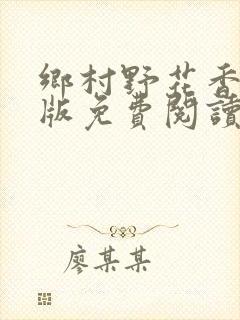 鄉村野花香
版免費閱讀
廖某某